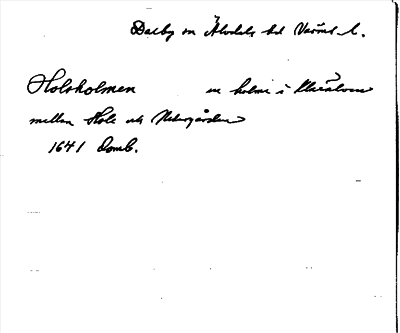 Dalby sn Älvdals hd Värml l.
Holsholmen en holme i Klarälven
mellan Hole och Nedregården
1641 Domb.